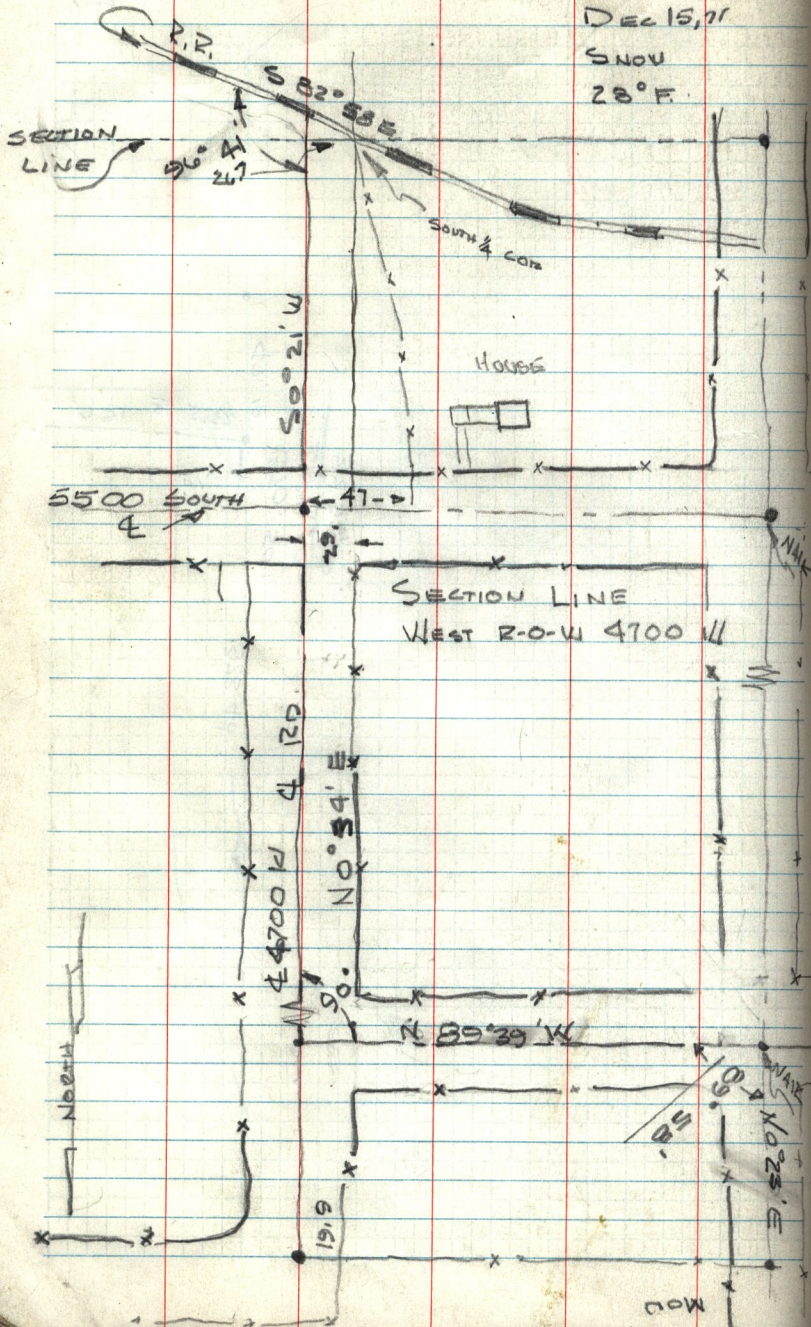 DEC 15, 71
SNOW
28° F.
R.R.
S 82° 58 E
SECTION
LINE
96° 41'
267
SOUTH 1/4 COR
S 0° 21' W
HOUSE
5500 SOUTH
℄
47
29.
NAIL
SECTION LINE
WEST R-O-W 4700 W
℄ RD.
N 0° 34' E
℄ 4700 W
90°
N 89° 39' W
NORTH
NAIL
89°
58'
N 0° 23' E
19.9